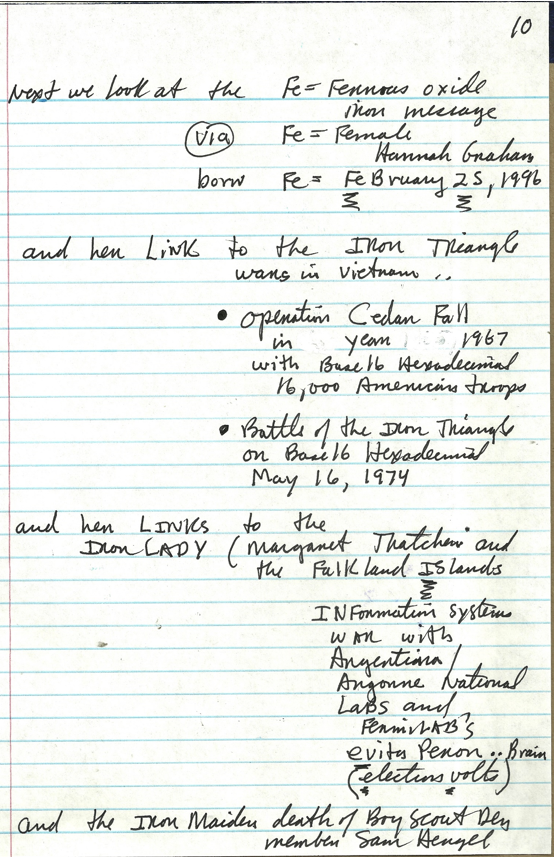 10
Next we look at the Fe = Ferrous oxide
iron message
via Fe = Female
Hannah Graham
born Fe = FeBruary 25, 1996
and her LINK to the IRon TRiangle
wars in Vietnam ..
• operation Cedar Fall
in year 1967
with Base16 Hexadecimal
16,000 American troops
• Battle of the IRon TRiangle
on Base16 Hexadecimal
May 16, 1974
and her LINKS to the
IRon LADY (Margaret Thatcher and
the Falkland ISlands
INFormation systems
war with
Argentina/
Argonne National
LABS and
FermiLAB's
evita Peron .. Brain
(electrons volts)
and the Iron Maiden death of Boy Scout Den
member Sam Hengel